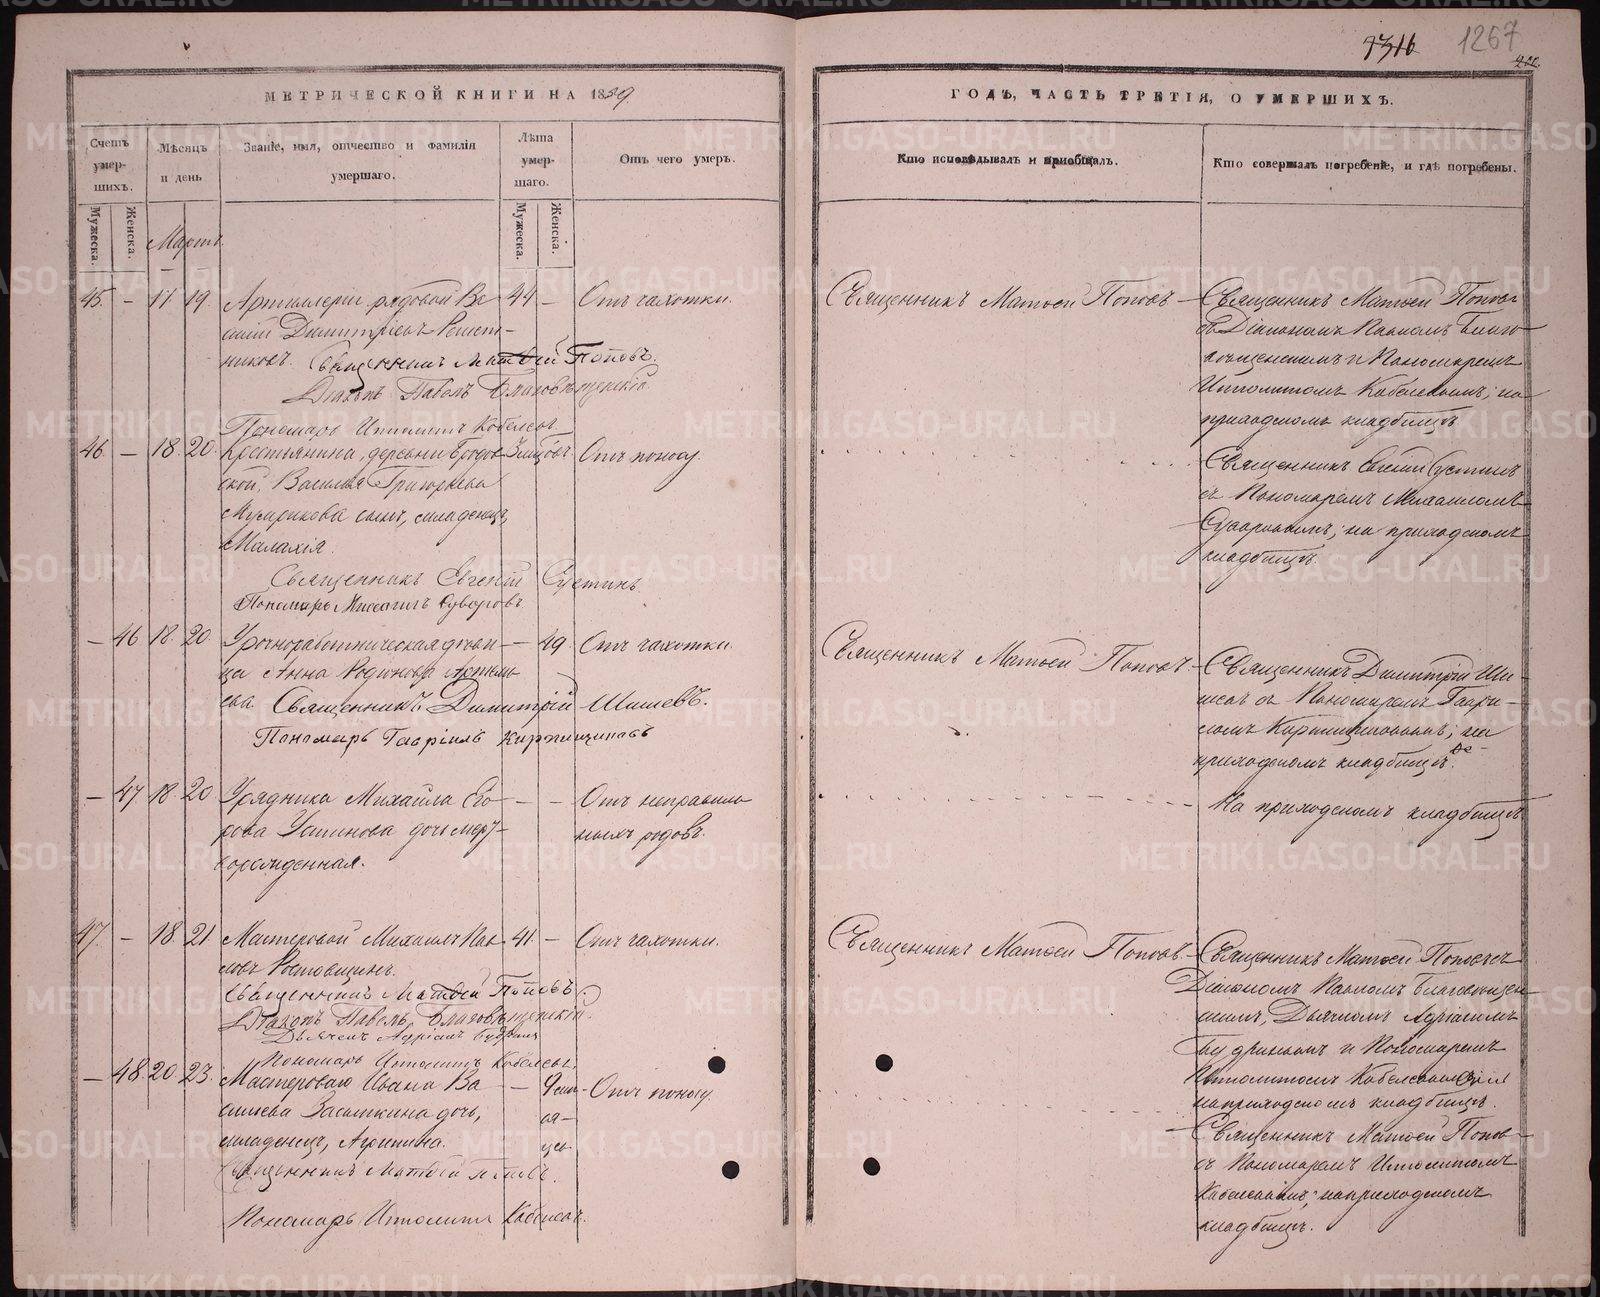 1316 1267
МЕТРИЧЕСКОЙ КНИГИ НА 1859
ГОДЪ, ЧАСТЬ ТРЕТІЯ, О УМЕРШИХЪ.
Счетъ умер-шихъ.
Мужеска.
Женска.
Мѣсяцъ и день
Званіе, имя, отчество и фамилія умершаго.
Лѣта умер-шаго.
Мужеска.
Женска.
Отъ чего умеръ.
Кто исповѣдывалъ и пріобщалъ.
Кто совершалъ погребеніе, и гдѣ погребены.
Мартъ.
45. – 17 19 Артиллеріи рядовой Ва- 44 – Отъ чахотки.
силій Димитріевъ Решет-
никовъ. Священникъ Матвѣй Поповъ.
Діаконъ Павелъ Благовѣщенскій
Пономарь Ипполитъ Кобелевъ
Священникъ Матвѣй Поповъ
Священникъ Матвѣй Поповъ
съ Діакономъ Павломъ Благо-
вѣщенскимъ и Пономаремъ
Ипполитомъ Кобелевымъ; на
приходскомъ кладбищѣ
46. – 18. 20. Крестьянина, деревни Бродов- Отъ поносу.
ской, Василья Григорьева
сынъ, младенецъ,
Малахія.
Священникъ Евгеній Сустинъ
Пономарь Михаилъ Суворовъ
Священникъ Евгеній Сустинъ
съ Пономаремъ Михаиломъ
Суворовымъ; на приходскомъ
кладбищѣ.
– 46 18. 20 Урочноработническая дѣви- – 49 Отъ чахотки.
ца Анна Родіонова
ева. Священникъ Димитрій Шишевъ.
Пономарь Гавріилъ Кирпищиковъ
Священникъ Матвѣй Поповъ.
Священникъ Димитрій Ши-
шевъ съ Пономаремъ Гаври-
ломъ Кирпищиковымъ; на
приходскомъ кладбищѣ.
– 47 18. 20 Урядника Михайла Его- – – Отъ неправиль-
рова Устинова дочь мерт- ныхъ родовъ.
ворожденная.
На приходскомъ кладбищѣ
47. – 18 21 Мастеровой Михаилъ Пав- 41. – Отъ чахотки.
ловъ Ростовщинъ.
Священникъ Матвѣй Поповъ.
Діаконъ Павелъ Благовѣщенскій.
Дьячекъ Адріанъ Будринъ
Пономарь Ипполитъ Кобелевъ.
Священникъ Матвѣй Поповъ.
Священникъ Матвѣй Поповъ съ
Діакономъ Павломъ Благовѣщен-
скимъ, Дьячкомъ Адріаномъ
Будринымъ и Пономаремъ
Ипполитомъ Кобелевымъ
на приходскомъ кладбищѣ.
– 48. 20 23. Мастероваго Ивана Ва- – 9 мѣ- Отъ поносу.
сильева Засыпкина дочь, ся-
младенецъ, Агрипина. цев
Священникъ Матвѣй Поповъ.
Пономарь Ипполитъ Кобелевъ.
Священникъ Матвѣй Поповъ
съ Пономаремъ Ипполитомъ
Кобелевымъ; на приходскомъ
кладбищѣ.
METRIKI.GASO-URAL.RU